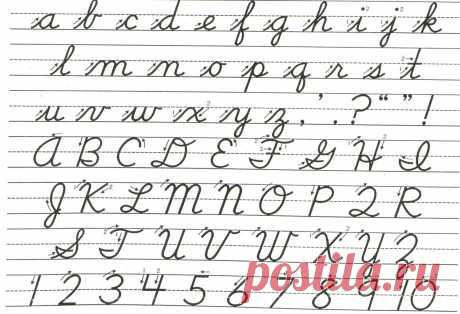 a b c d e f g h i j k
l m n o p q r s t
u v w x y z , ' . ? " " !
A B C D E F G H I
J K L M N O P Q R
S T U V W X Y Z
1 2 3 4 5 6 7 8 9 10
postila.ru